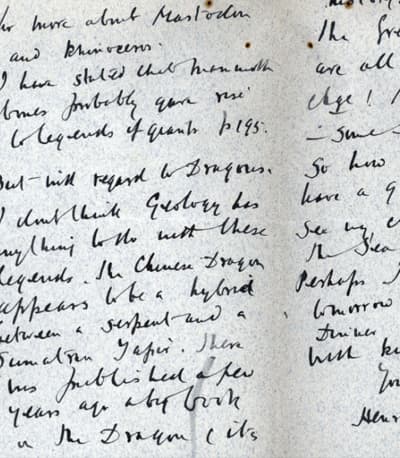 for more about Mastodon
and Rhinoceros.
I have stated that mammoth
bones probably gave rise
to legends of giants p195.
But with regard to Dragons.
I don't think Geology has
anything to do with these
legends. The Chinese Dragon
appears to be a hybrid
between a serpent and a
Sumatran Tapir. There
was published a few
years ago a big book
on the Dragon (its
The Gre
are all
age! 
– some
So how
have a g
see my
the Sea
Perhaps
tomorrow
Dinner
With k
You
Henr